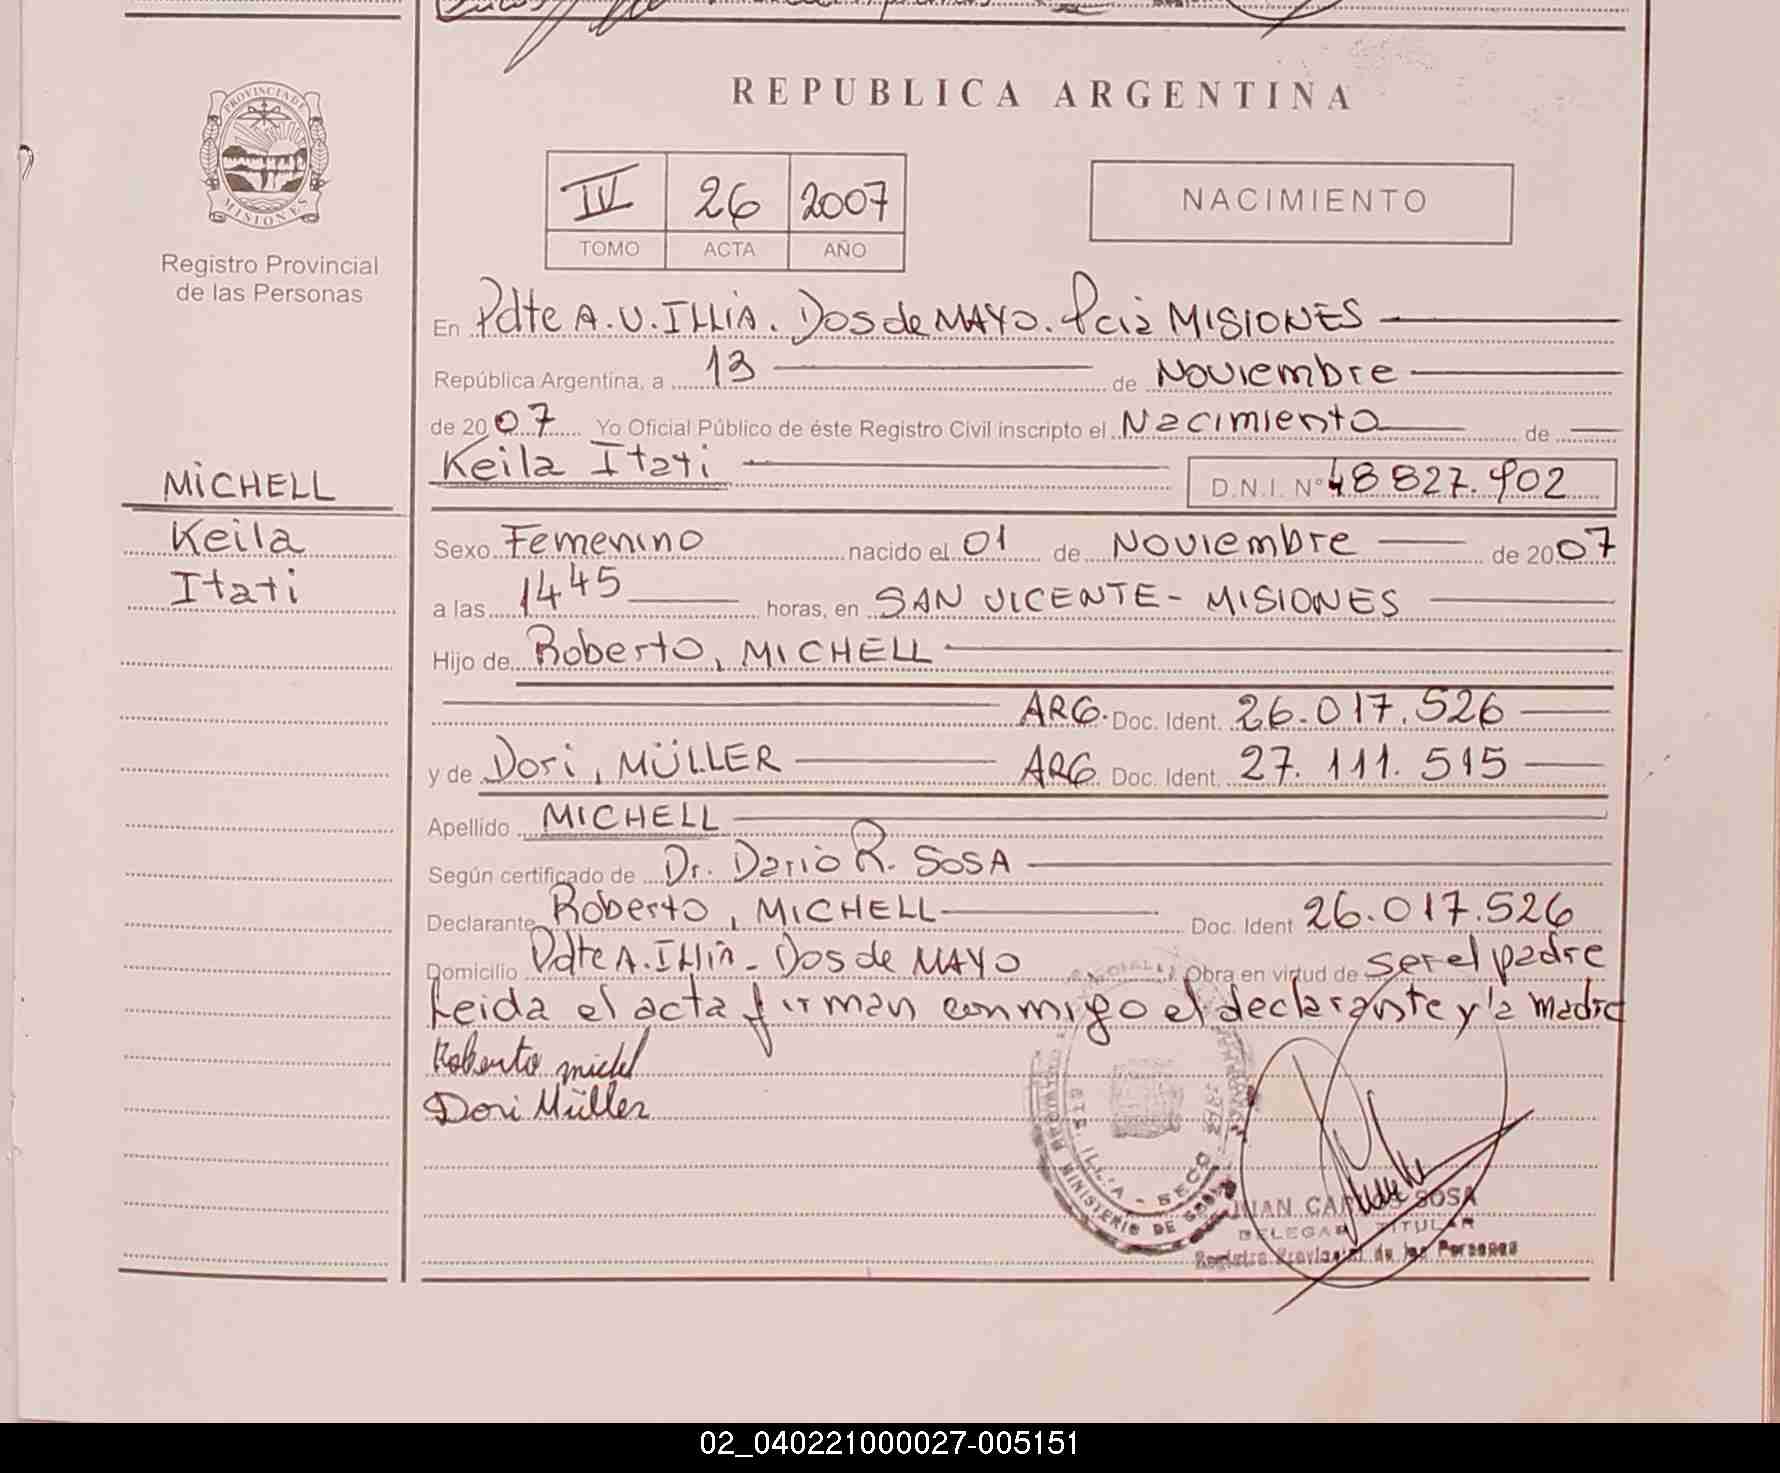 REPUBLICA ARGENTINA
PROVINCIA DE
MISIONES
Registro Provincial
de las Personas
IV 26 2007
TOMO ACTA AÑO
NACIMIENTO
En Pdte A.U.ILLIA. Dos de MAYO. Pcia MISIONES
República Argentina, a 13 de Noviembre
de 2007 Yo Oficial Público de éste Registro Civil inscripto el Nacimiento de
Keila Itati D.N.I. Nº 48 827.902
MICHELL
Keila
Itati
Sexo Femenino nacido el 01 de Noviembre de 2007
a las 14 45 horas, en SAN VICENTE - MISIONES
Hijo de Roberto, MICHELL
ARG. Doc. Ident. 26.017.526
y de Dori, MÜLLER ARG Doc. Ident. 27.111.515
Apellido MICHELL
Según certificado de Dr. Dario R. SOSA
Declarante Roberto, MICHELL Doc. Ident 26.017.526
Domicilio Pdte A. Illia - Dos de MAYO Obra en virtud de ser el padre
Leida el acta firman conmigo el declarante y la madre
Roberto michel
Dori Müller
MINISTERIO DE
JUAN CARLOS SOSA
DELEGADO TITULAR
Registro Provincial de las Personas
02_040221000027-005151